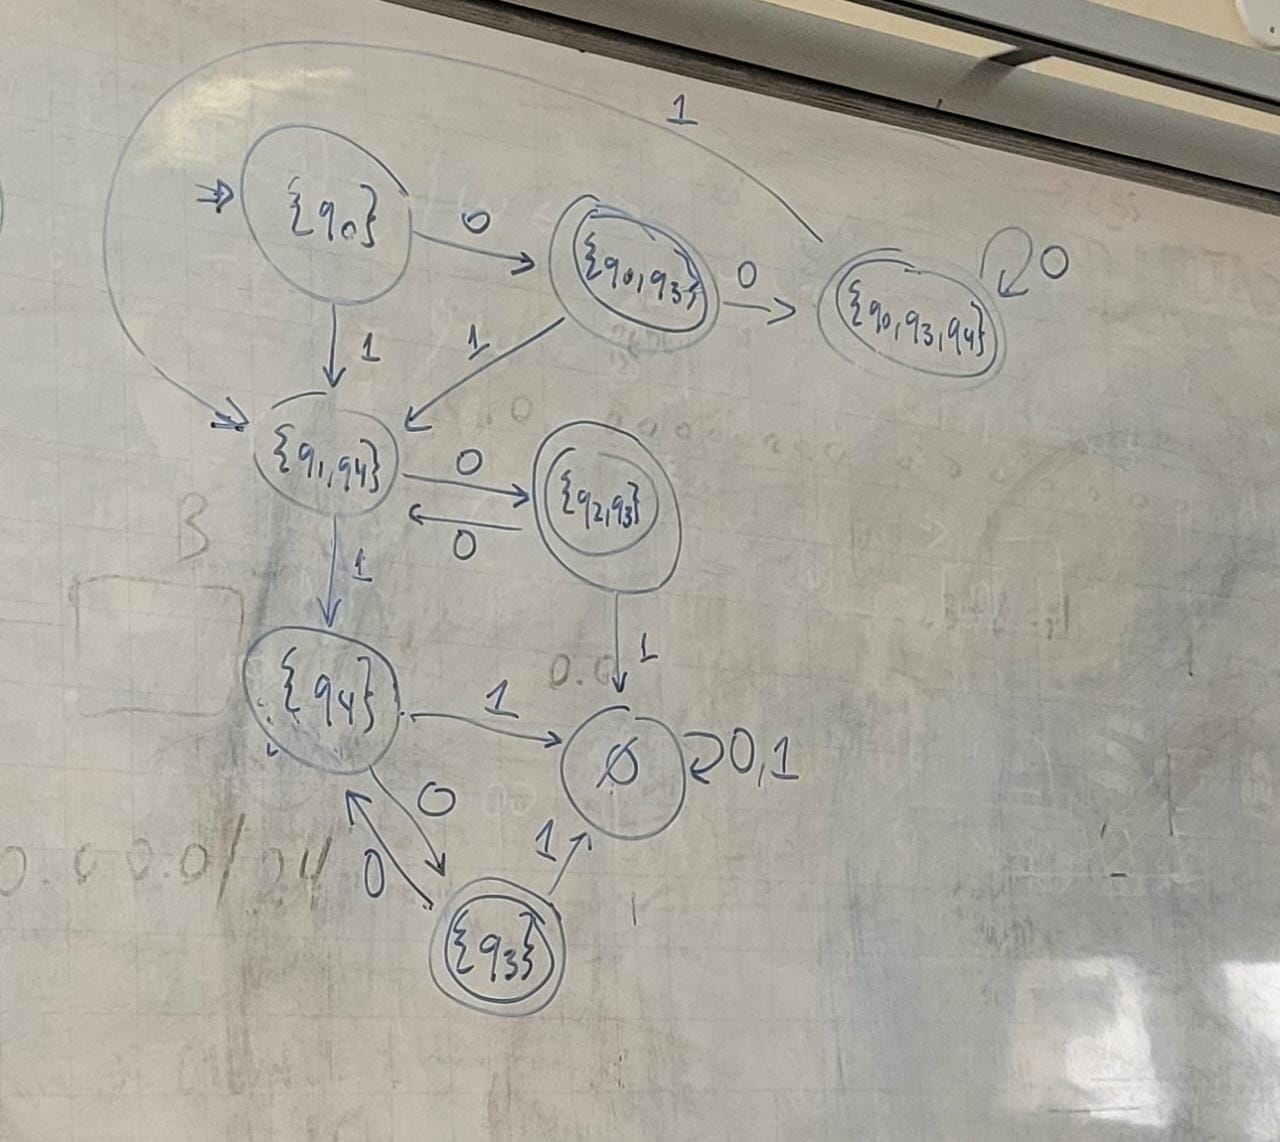 1
{q0}
0
{q0,q3}
0
{q0,q3,q4}
0
1
1
{q1,q4}
0
0
{q2,q3}
B
1
1
0.0
{q4}
1
Ø
0,1
0
0
1
0.0.0.0/24
{q3}